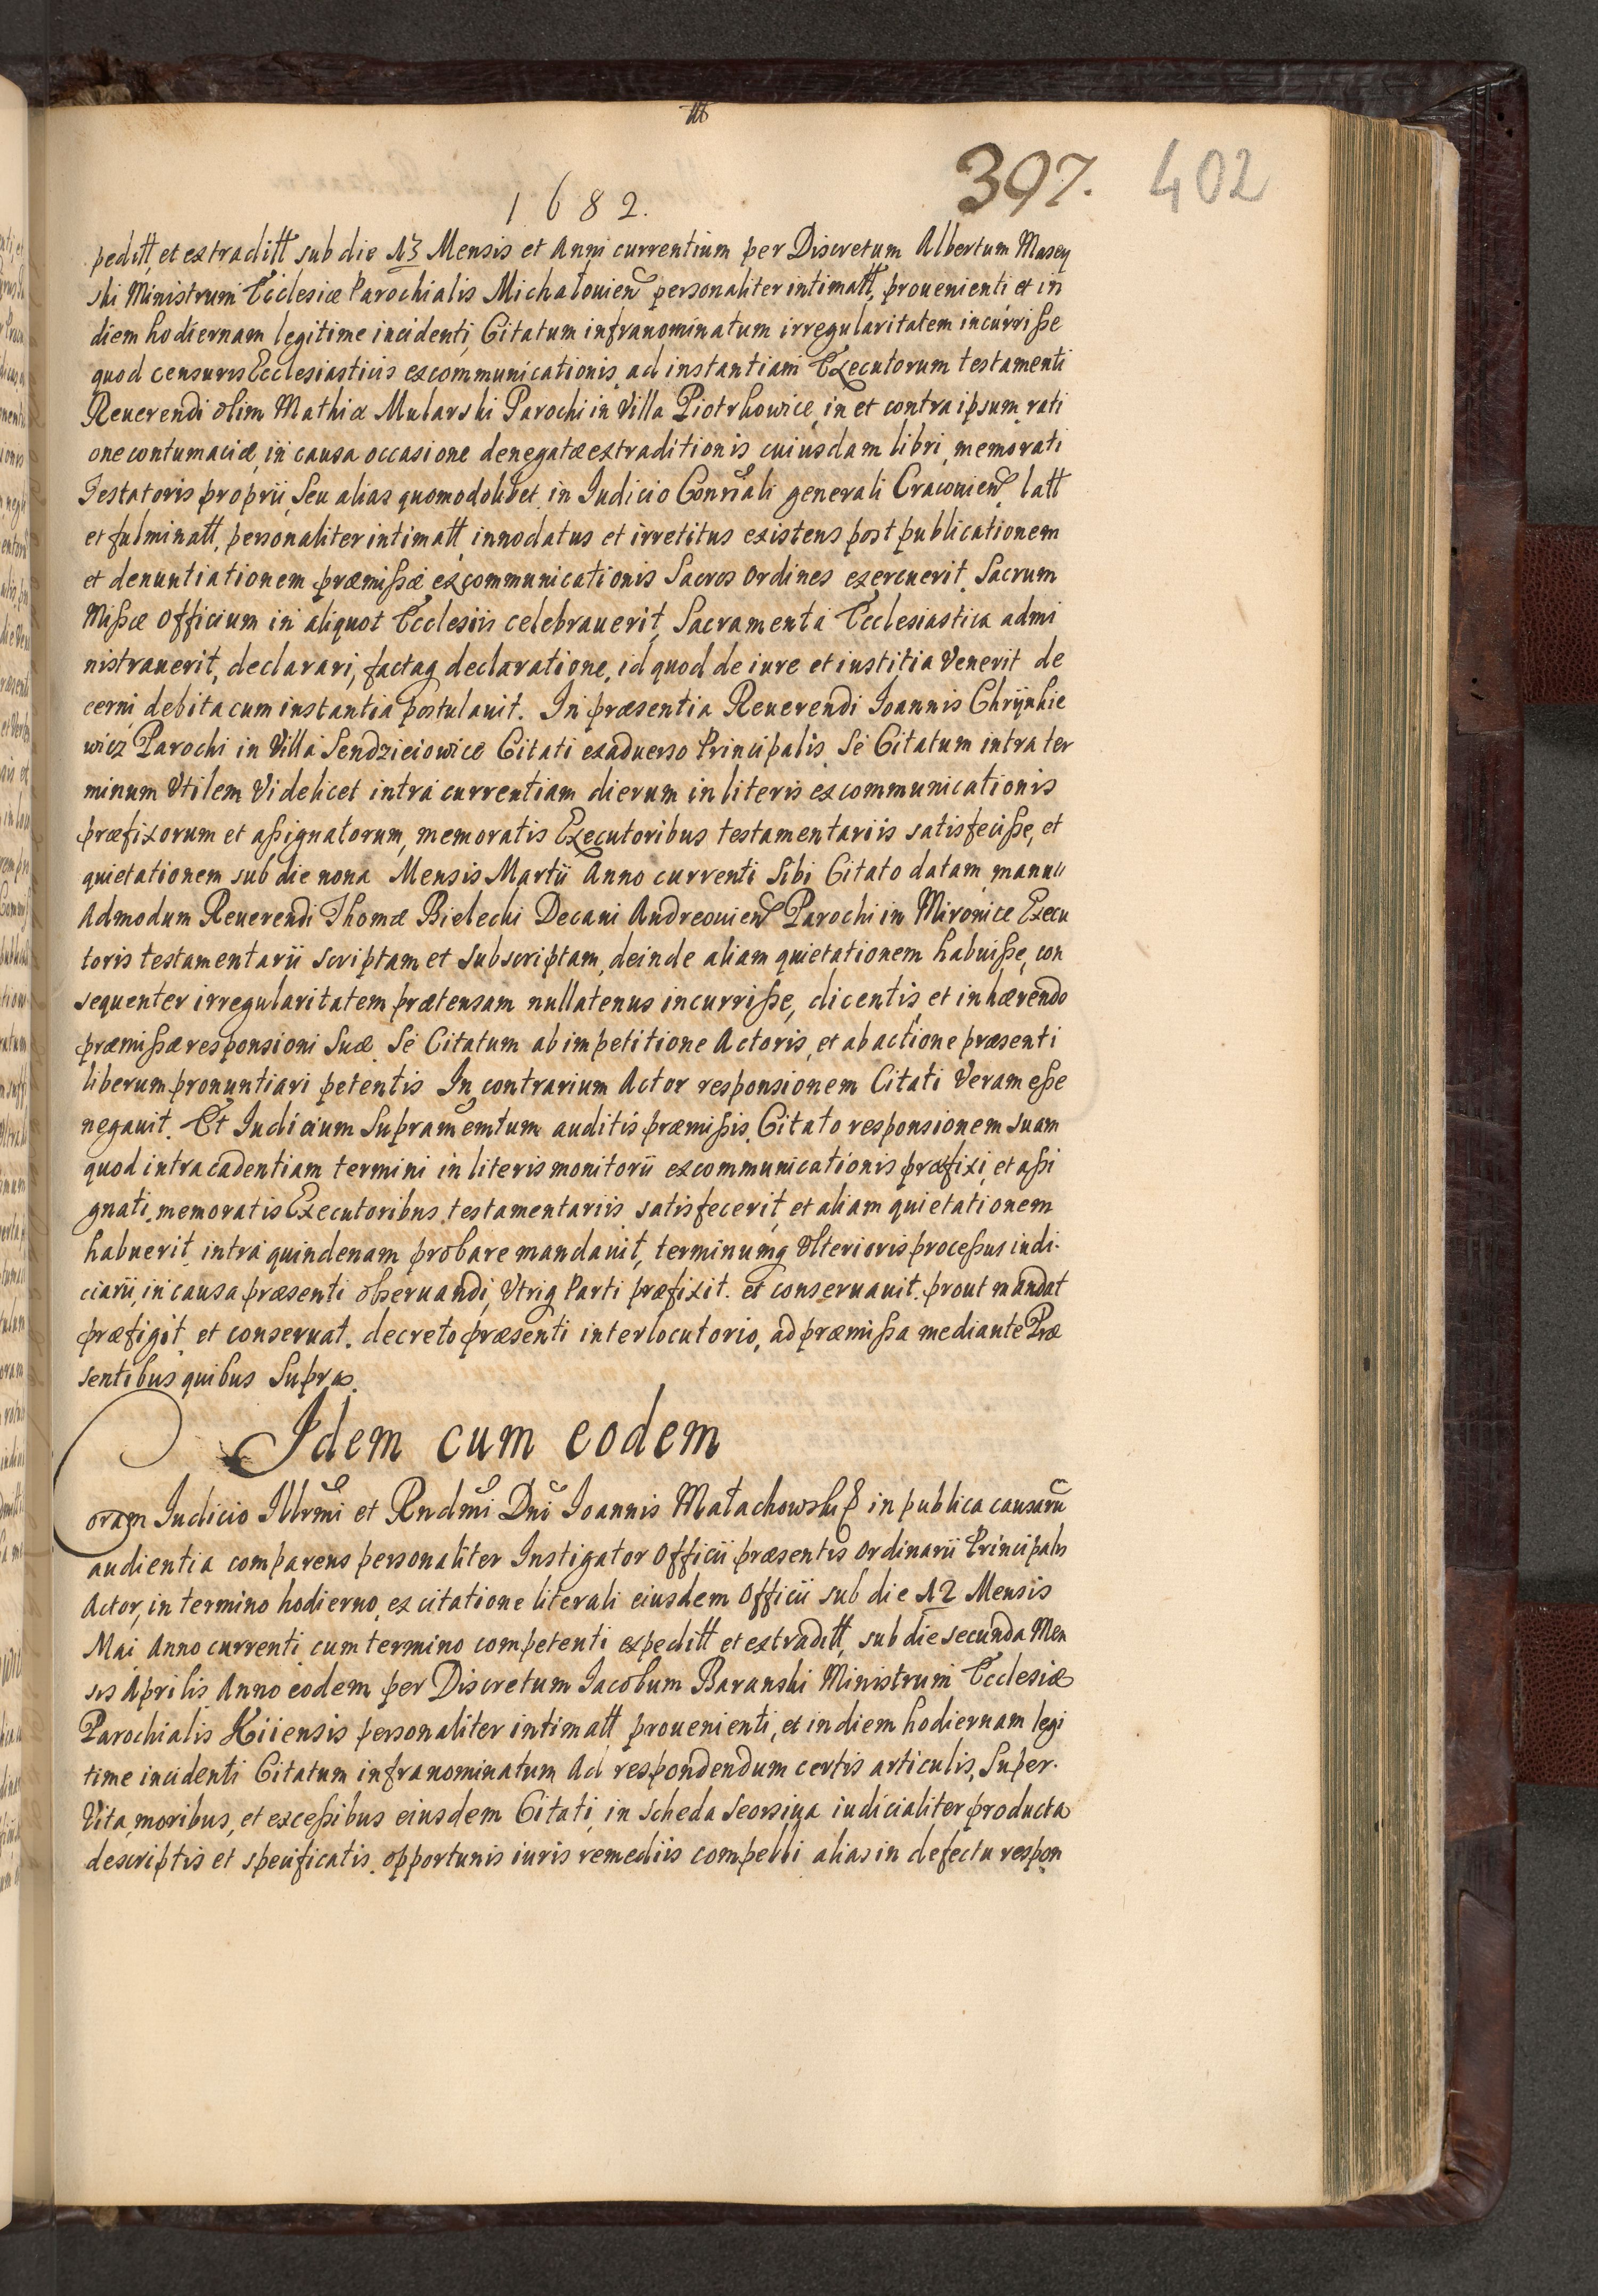 397. 402
1682.
peditt, et extraditt sub die 13 Mensis et Anni currentium per Discretum Albertum Masey
ski Ministrum Ecclesiæ Parochialis Michałouien personaliter intimatt, prouenienti et in
diem hodiernam legitime incidenti, Citatum infranominatum irregularitatem incurriſse
quod censuris Ecclesiasticis excommunicationis ad instantiam Executorum testamenti
Reuerendi olim Mathiæ Mularski Parochi in Villa Piotrkowice, in et contra ipsum rati
one contumaciæ, in causa occasione denegatæ extraditionis cuiusdam libri, memorati
Testatoris proprii, Seu alias quomodolibet in Iudicio Conrialì generali Cracouien latt
et fulminatt, personaliter intimatt innodatus et irretitus existens post publicationem
et denuntiationem præmiſsæ excommunicationis Sacros Ordines exercuerit, Sacrum
Miſsæ Officium in aliquot Ecclesiis celebrauerit, Sacramenta Ecclesiastica admi
nistrauerit, declarari, factaq declaratione, id quod de iure et iustitia Venerit de
cerni debita cum instantia postulauit. In præsentia Reuerendi Ioannis Chrynkie
wicz Parochi in Villa Sendzieiowice Citati exaduerso Principalis Se Citatum intra ter
minum Vtilem Videlicet intra currentiam dierum in literis excommunicationis
præfixorum et aſsignatorum, memoratis Executoribus testamentariis satisfeciſse, et
quietationem sub die nona Mensis Martii Anno currenti Sibi Citato datam, manu
Admodum Reuerendi Thomæ Bielecki Decani Andreouien Parochi in Mironice Execu
toris testamentarii scriptam et subscriptam, deinde aliam quietationem habuiſse, con
sequenter irregularitatem prætensam nullatenus incurriſse, dicentis, et inhærendo
præmiſsæ responsioni Suæ Se Citatum ab impetitione Actoris, et ab actione præsenti
liberum pronuntiari petentis In contrarium Actor responsionem Citati Veram eſse
negauit. Et Iudicium Supramemtum auditis præmiſsis, Citato responsionem suam
quod intra cadentiam termini in literis monitorii excommunicationis præfixi, et aſsi
gnati, memoratis Executoribus testamentariis satisfecerit, et aliam quietationem
habuerit, intra quindenam probare mandauit, terminumq Vlterioris proceſsus iudi.
ciarii, in causa præsenti obseruandi, Vtriq Parti præfixit. et conseruauit. prout mandat
præfigit et conseruat. decreto præsenti interlocutorio, ad præmiſsa mediante Præ
sentibus quibus Supra.
Idem cum eodem
Coram Iudicio Illrmi et Rndmi Dni Ioannis Małachowski in publica causaru
audientia comparens personaliter Instigator Officii præsentis Ordinarii Principalis
Actor, in termino hodierno, ex citatione literali eiusdem Officii sub die 12 Mensis
Mai Anno currenti cum termino competenti expeditt et extraditt, sub die secunda Men
sis Aprilis Anno eodem per Discretum Iacobum Baranski Ministrum Ecclesiæ
Parochialis Kiiensis personaliter intimatt prouenienti, et in diem hodiernam legi
time incidenti Citatum infranominatum Ad respondendum certis articulis, Super.
Vita, moribus, et exceſsibus eiusdem Citati, in Scheda Seorsiua iudicialiter producta
descriptis et specificatis, opportunis iuris remediis compelli alias in defectu respon